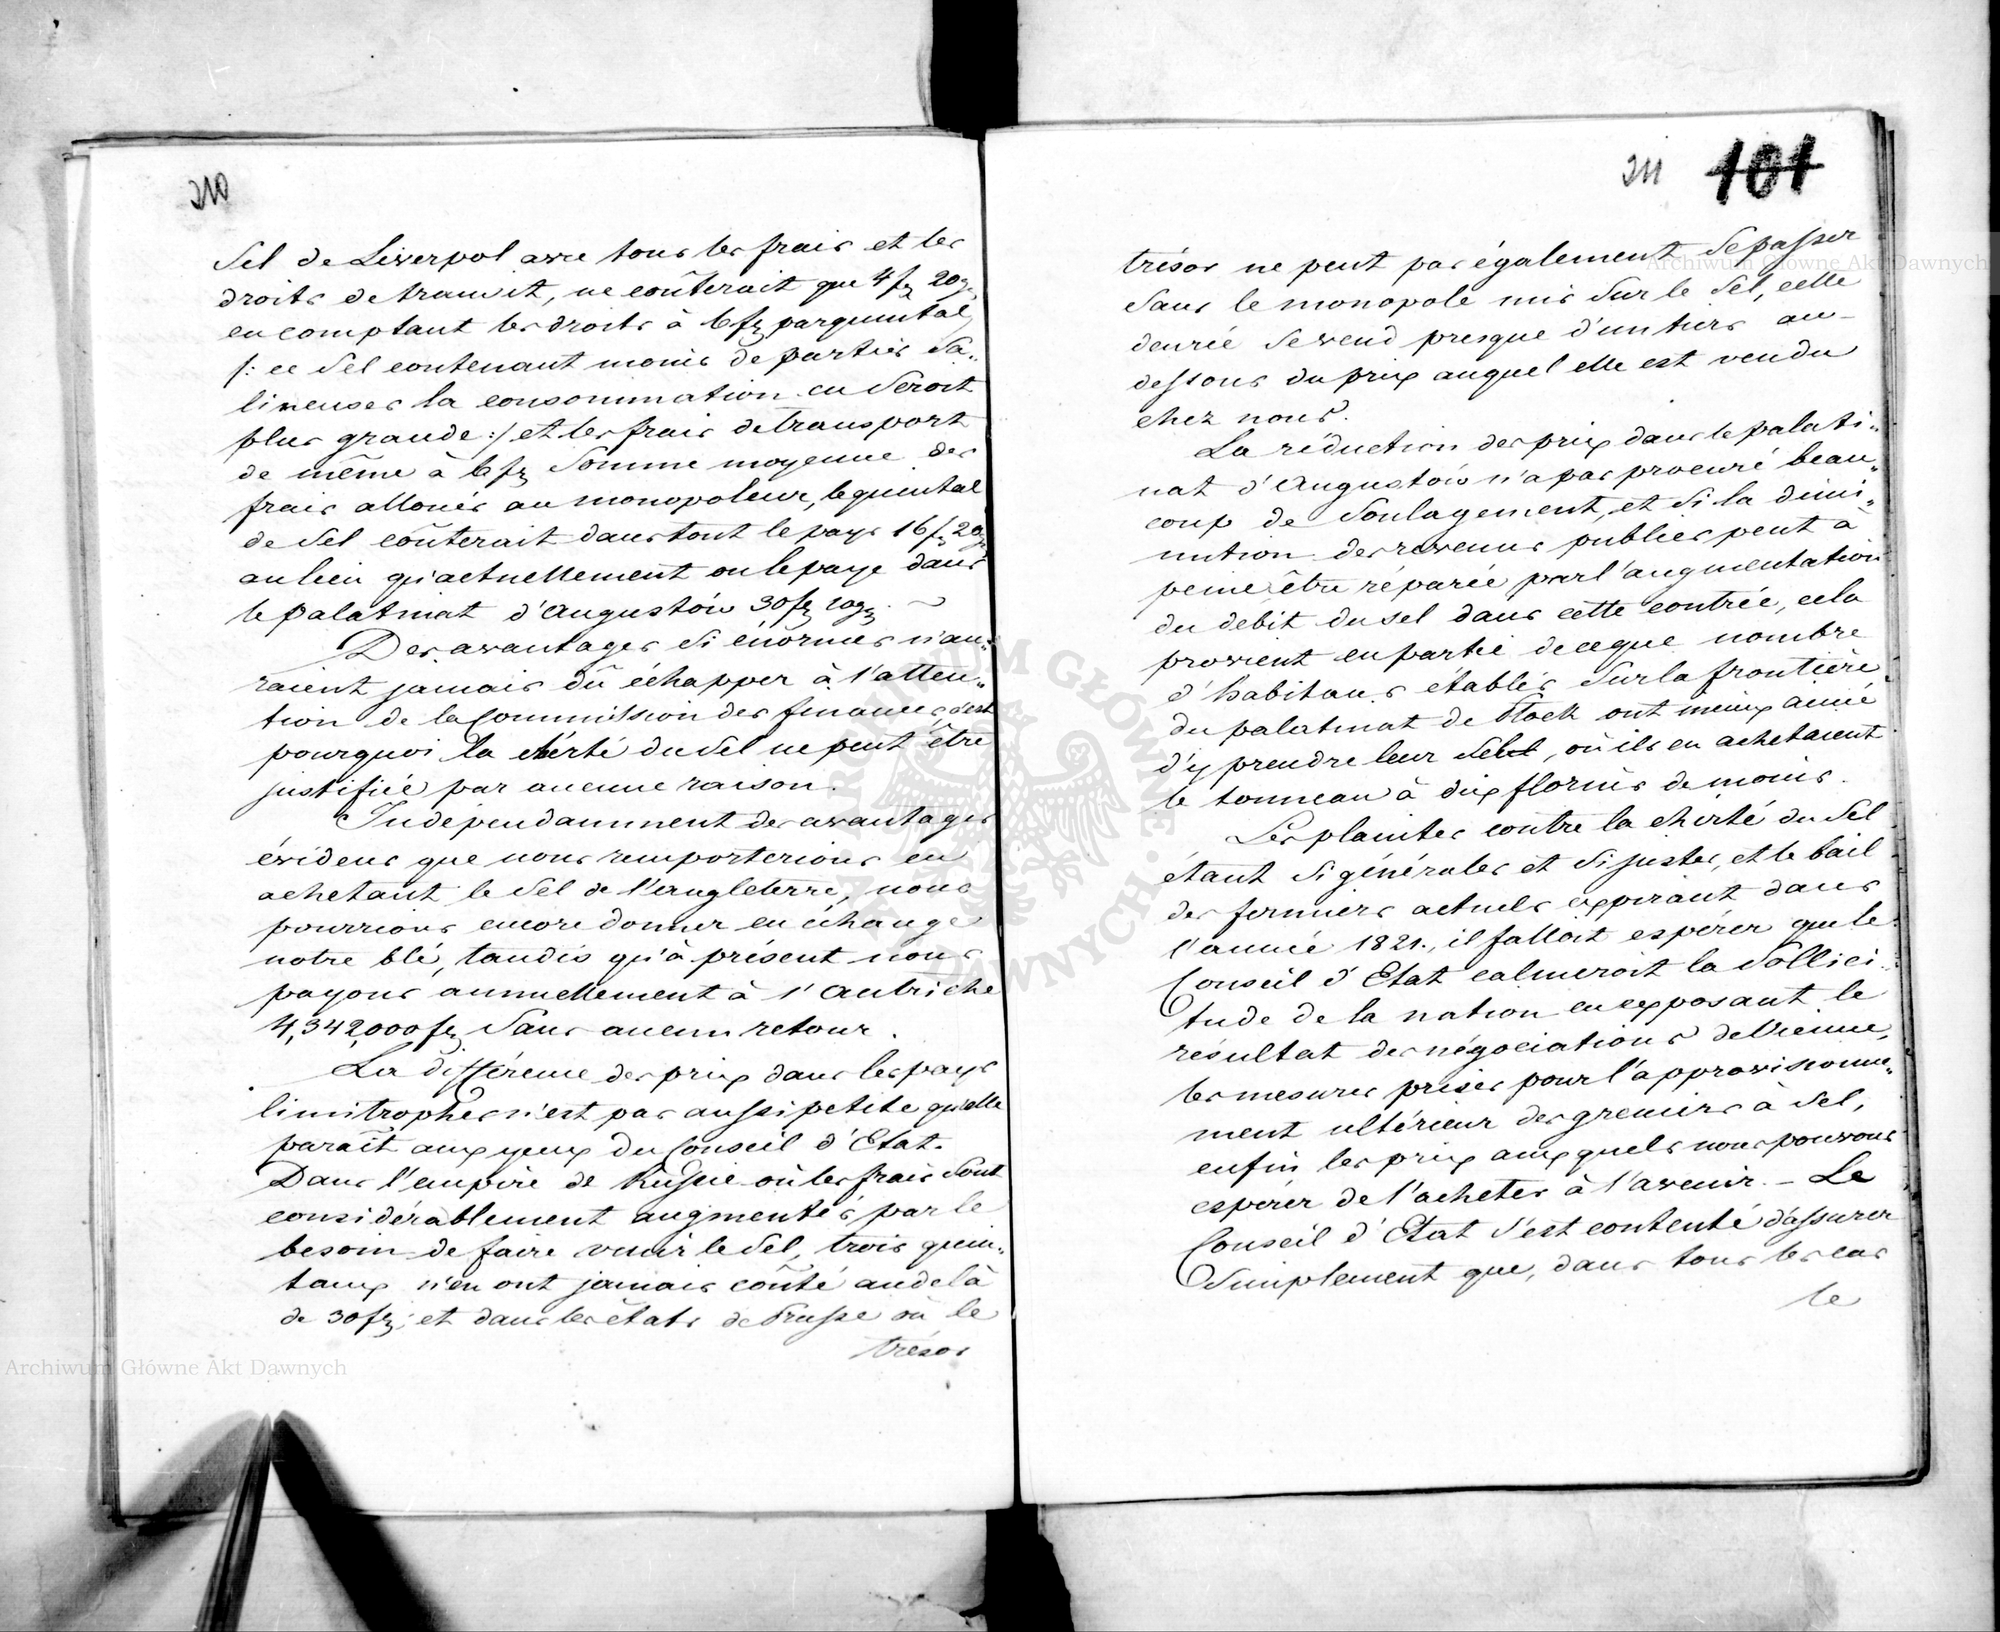 210
Sel de Liverpol avec tous les frais et les
droits de transit, ne coûterait que 4 fz 20 gz,
en comptant les droits à 6 fz par quintal,
/: ce Sel contenant moins de parties Sa„
lineuses la consommation en Seroit
plus grande :/ et les frais de transport
de même à 6 fz Somme moyenne des
frais alloués au monopoleur, le quintal
de Sel coûterait dans tout le pays 16 fz 20 gz
au lieu qu'actuellement on le paye dans
le palatinat d'Augustów 30 fz 10 gz. ~
Des avantages Si énormes n'au„
raient jamais dû échapper à l'atten„
tion de la Commission des finances, c'est
pourquoi la chérté du Sel ne peut être
justifiée par aucune raison.
Indépendamment des avantages
évidens que nous remporterions en
achetant le Sel de l'Angleterre, nous
pourrions encore donner en échange
notre blé, tandis qu'à présent nous
payons annuellement à l'Autriche
4,342,000 fz Sans aucun retour.
La différence des prix dans les pays
limitrophes n'est pas aussi petite qu'elle
paraît aux yeux du Conseil d'Etat.
Dans l'empire de Russie où les frais Sont
considérablement augmentés par le
besoin de faire venir le Sel, trois quin„
taux n'en ont jamais coûté au delà
de 30 fz; et dans les états de Prusse où le
trésor
211 101
trésor ne peut pas également Se passer
Sans le monopole mis Sur le Sel, cette
denrée Se vend presque d'un tiers au-
dessous du prix auquel elle est vendu
chez nous.
La réduction des prix dans le palati„
nat d'Augustów n'a pas procuré beau„
coup de Soulagement, et Si la dimi„
nution des revenus publics peut à
peine être réparée par l'augmentation
du debit du sel dans cette contrée, cela
provient en partie de ce que nombre
d'habitans établis Sur la frontière
du palatinat de Płock ont mieux aimé
d'y prendre leur Sel, où ils en achetaient
le tonneau à dix florins de moins.
Les plaintes contre la chérté du Sel
étant Si générales et Si justes, et le bail
des fermiers actuels expirant dans
l'année 1821., il falloit espérer que le
Conseil d'Etat calmeroit la Sollici„
tude de la nation en exposant le
résultat des négociations de Vienne,
les mesures prises pour l'approvisionne„
ment ultérieur des greniers à Sel,
enfin les prix auxquels nous pouvons
espérer de l'acheter à l'avenir. – Le
Conseil d'Etat S'est contenté d'assurer
Simplement que, dans tous les cas
le
Archiwum Główne Akt Dawnych
Archiwum Główne Akt Dawnych
ARCHIWUM GŁÓWNE AKT DAWNYCH